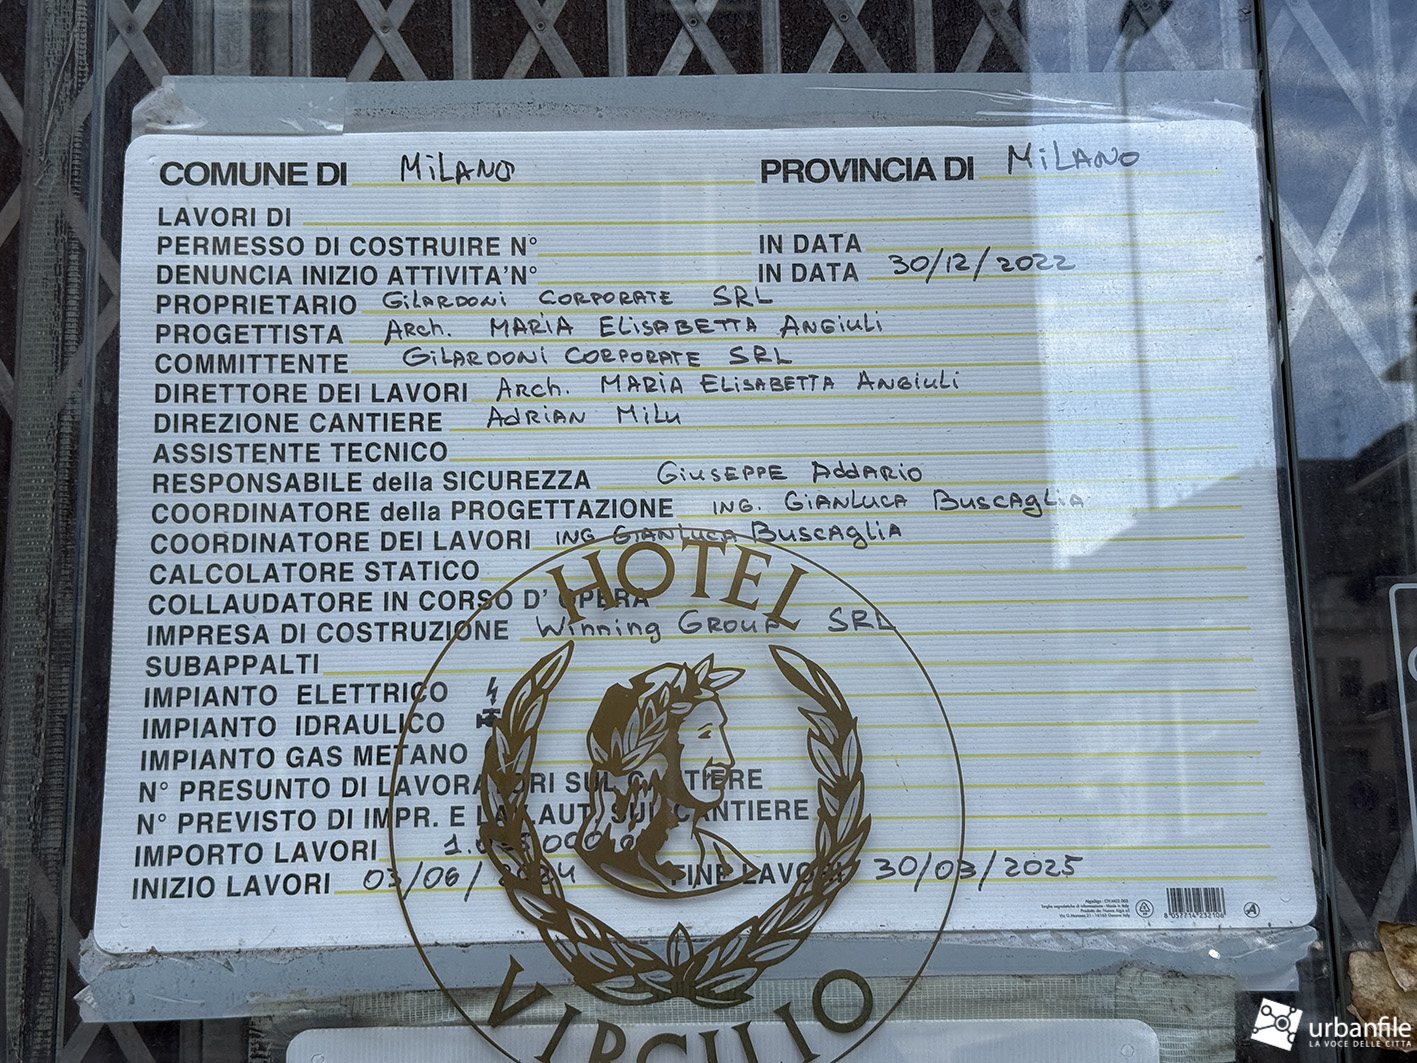 COMUNE DI MiLANO PROVINCIA DI MiLANO
LAVORI DI
PERMESSO DI COSTRUIRE N° IN DATA
DENUNCIA INIZIO ATTIVITA'N° IN DATA 30/12/2022
PROPRIETARIO GiLARDONi CORPORATE SRL
PROGETTISTA ARch. MARiA ELiSABETTA ANGiULi
COMMITTENTE GiLARDONi CORPORATE SRL
DIRETTORE DEI LAVORI ARch. MARiA ELiSABETTA ANGiULi
DIREZIONE CANTIERE AdRiAN MiLu
ASSISTENTE TECNICO
RESPONSABILE della SICUREZZA GiuSEPPE AddARiO
COORDINATORE della PROGETTAZIONE iNG. GiANLUCA BuscAgliA
COORDINATORE DEI LAVORI iNG GiANLUCA BuscAgliA
CALCOLATORE STATICO
COLLAUDATORE IN CORSO D' OPERA
IMPRESA DI COSTRUZIONE Winning GROUP SRL
SUBAPPALTI
IMPIANTO ELETTRICO
IMPIANTO IDRAULICO
IMPIANTO GAS METANO
N° PRESUNTO DI LAVORATORI SUL CANTIERE
N° PREVISTO DI IMPR. E LAV. AUT. SUL CANTIERE
IMPORTO LAVORI
INIZIO LAVORI 03/06/2024 FINE LAVORI 30/03/2025
8 057714 232106
HOTEL
VIRGILIO
urbanfile
LA VOCE DELLE CITTÀ